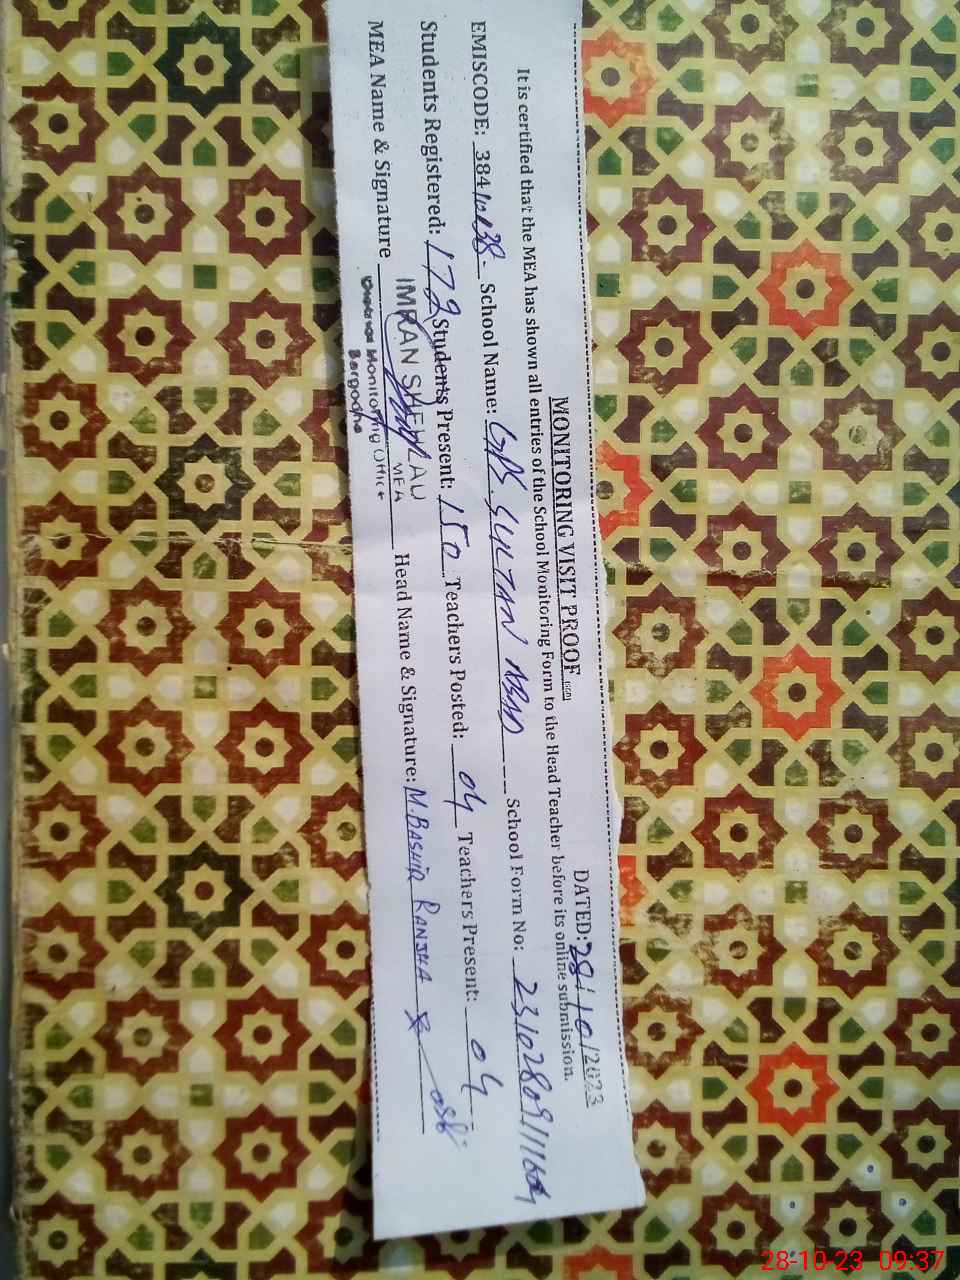 MONITORING VISIT PROOF
DATED: 28/10/2023
It is certified that the MEA has shown all entries of the School Monitoring Form to the Head Teacher before its online submission.
EMISCODE: 384 School Name: GPS. SULTAN ABAD School Form No:
Students Registered: 172 Students Present: 150 Teachers Posted: 04 Teachers Present: 04
MEA Name & Signature Head Name & Signature: M.BASHIR RANJHA
IMRAN
MEA
Monitoring Office
Sargodha
28-10-23 09:37